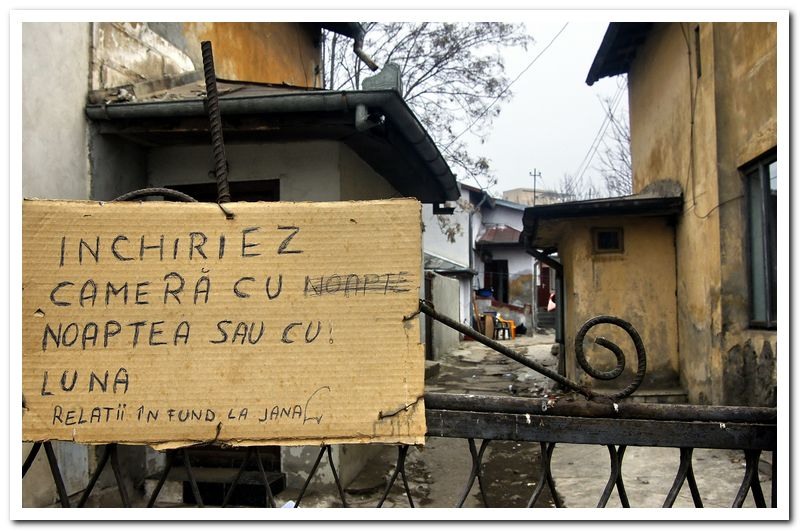 INCHIRIEZ
CAMERĂ CU NOAPTE
NOAPTEA SAU CU
LUNA
RELATII ÎN FUND LA JANA